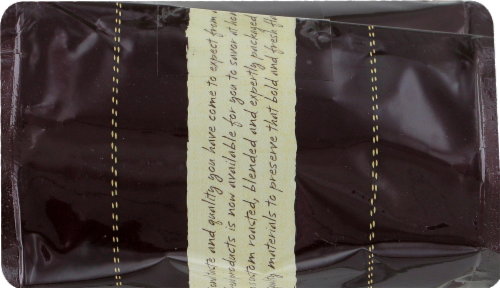 and quality you have come to expect from
products is now available for you to savor at
roasted, blended and expertly packaged
materials to preserve that bold and fresh